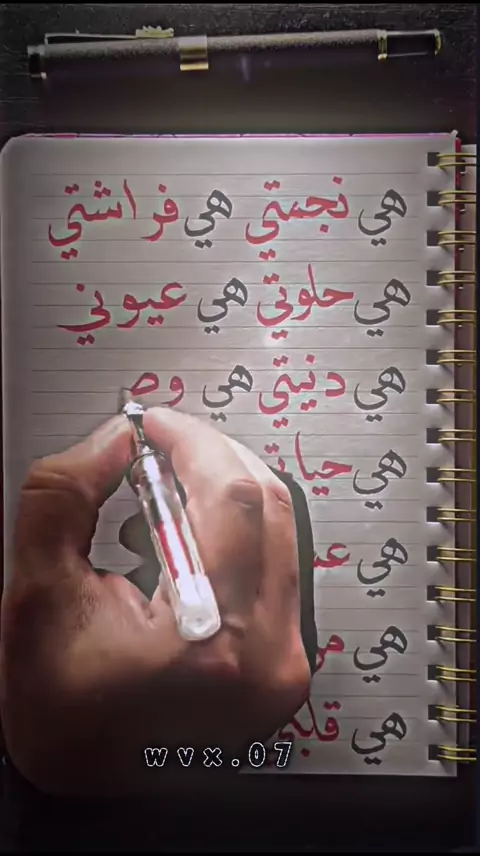 هي نجمتي هي فراشتي
هي حلوتي هي عيوني
هي دنيتي هي وص
هي
هي
هي
هي
wvx.07